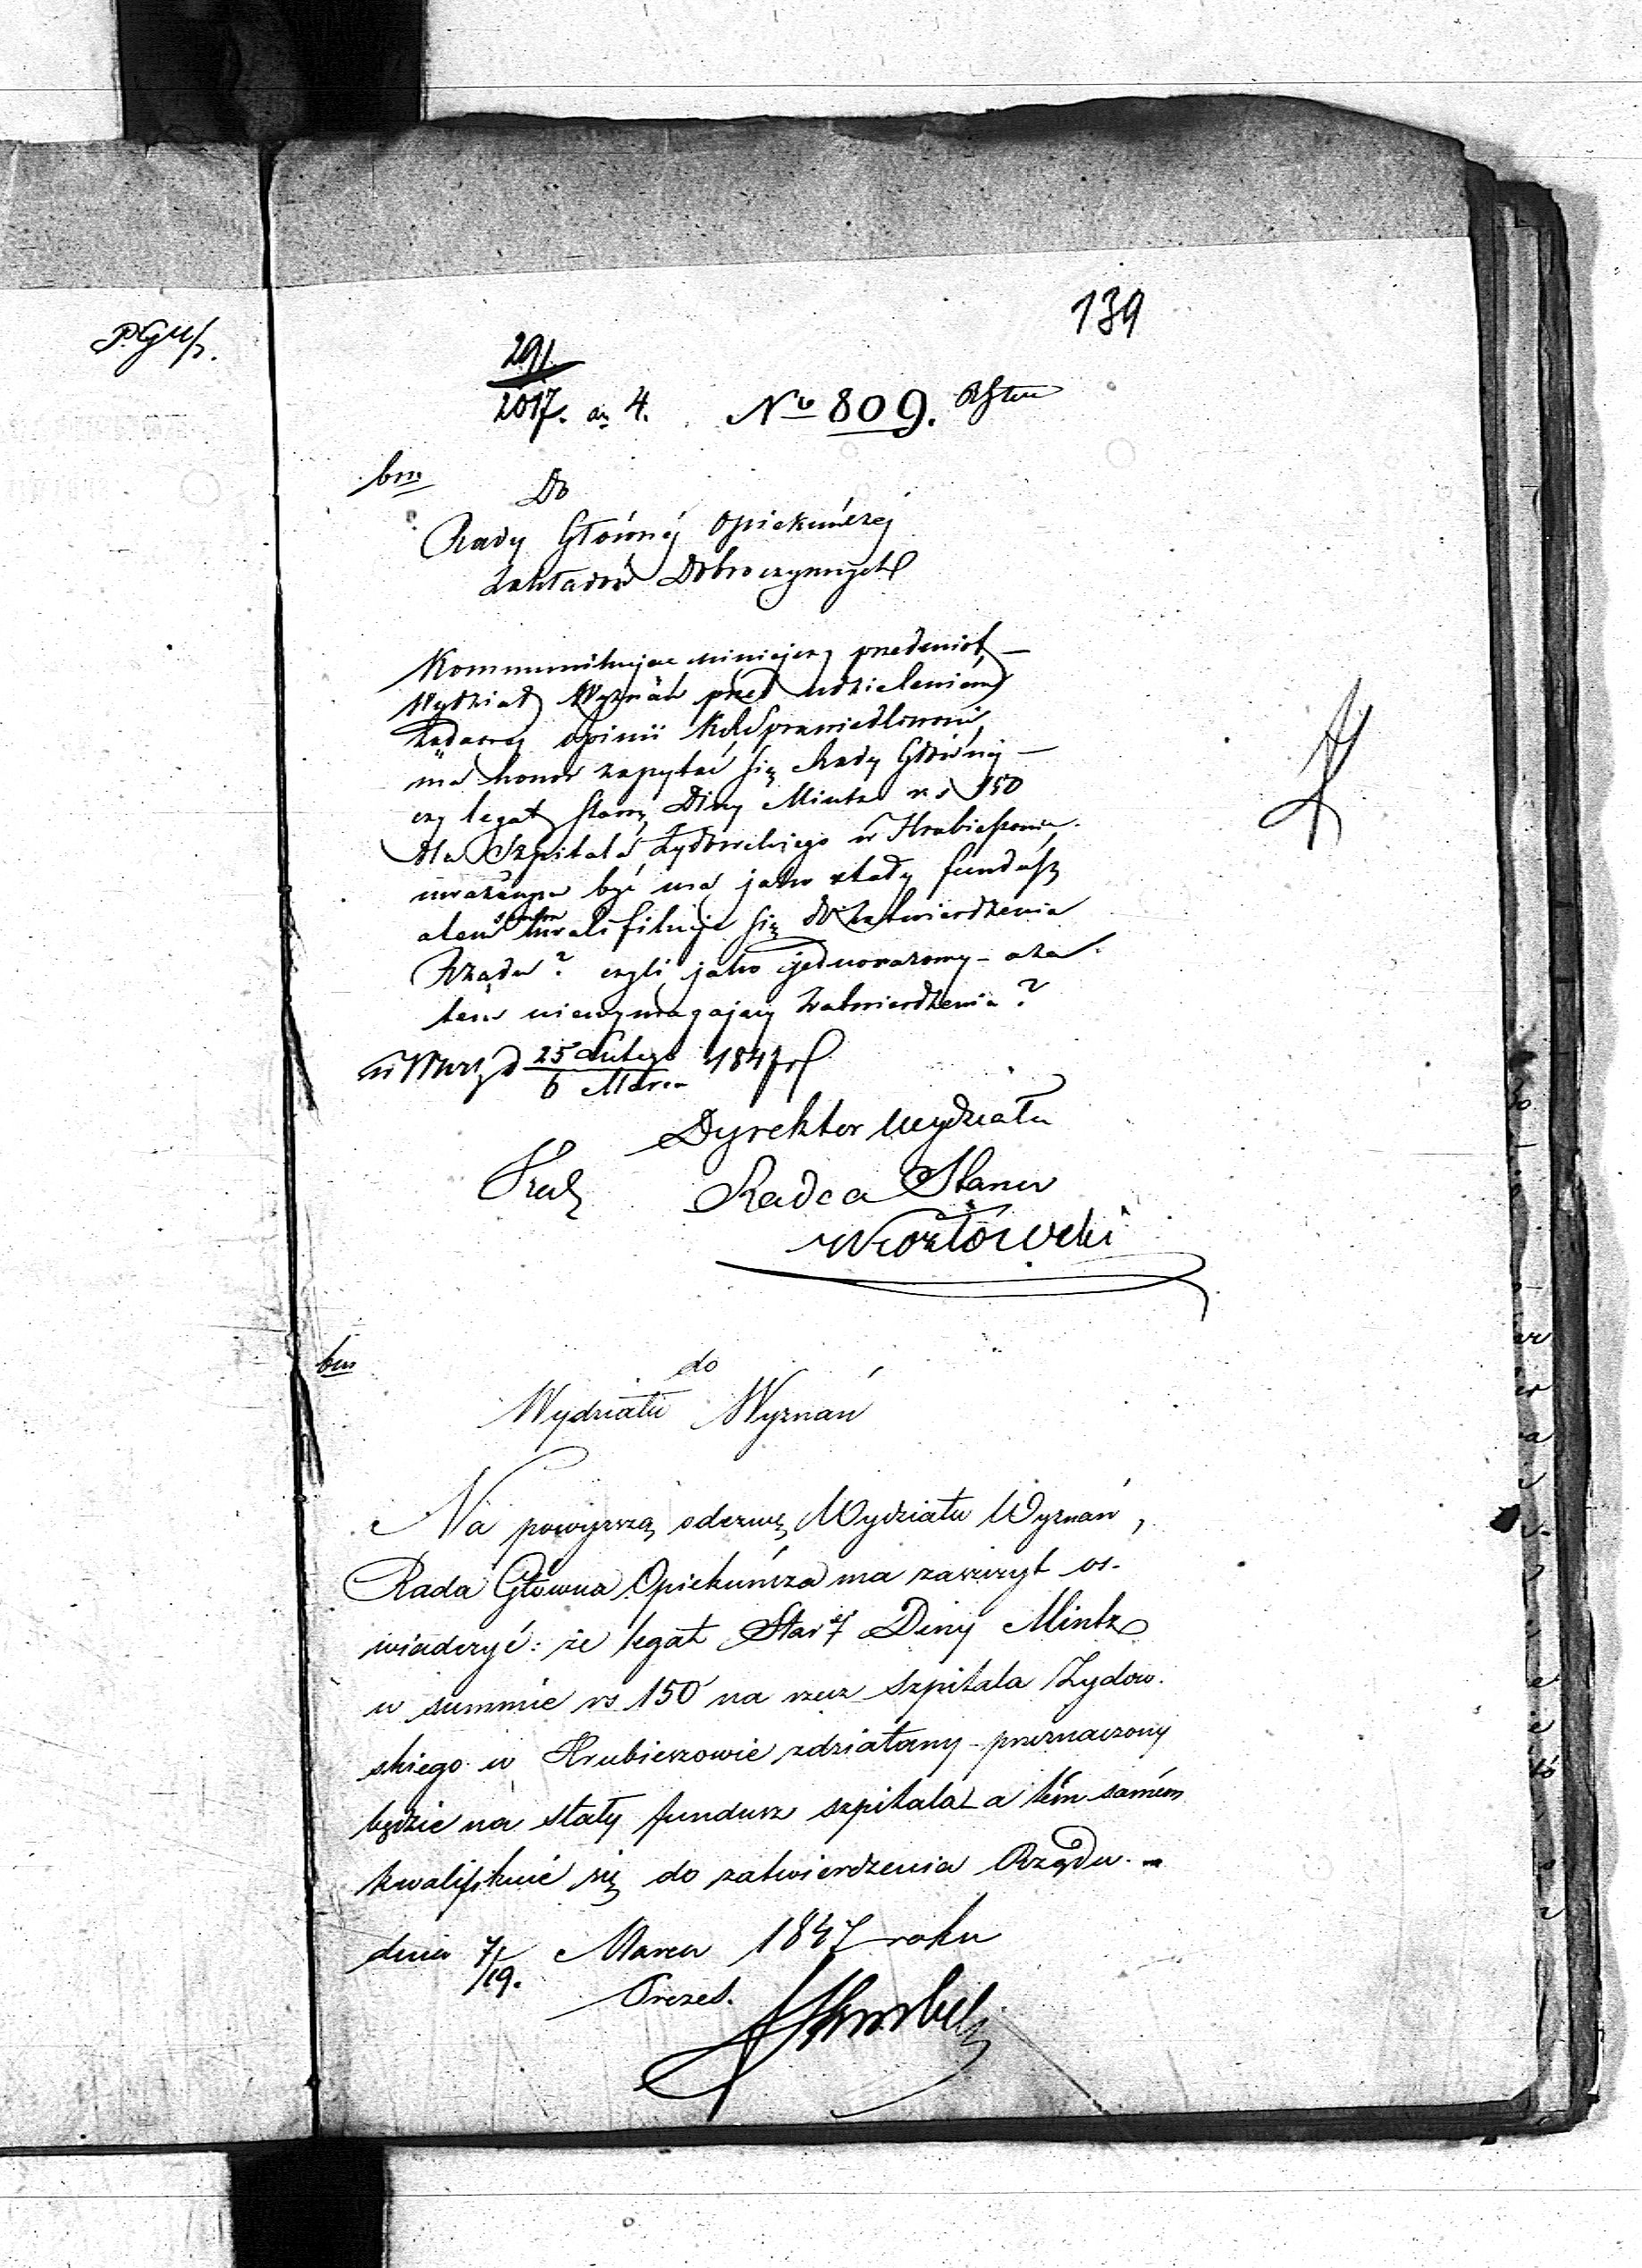 139
291
2017. a 4. No 809.
bm
Do
Rady Głównéj Opiekuńczéj
Zakładów Dobroczynnych
Kommunikując niniejszy przedmiot —
Wydział Wyznań przed udzieleniem
żądanej opinii Sprawiedliwości
ma honor zapytać się Rady Głównéj —
czy legat Starz. Diny Mintz rs 150
dla Szpitala Żydowskiego w Hrubieszowie
uważany być ma jako stały fundusz
a tem samem kwalifikuje się do zatwierdzenia
Rządu? czyli jako jednorazowy – a za
tem niewymagający zatwierdzenia?
w Warsz. d 25 Lutego / 6 Marca 1847 r
Dyrektor Wydziału
Radca Stanu
bm
do
Wydziału Wyznań
Na powyższą odezwę Wydziału Wyznań,
Rada Główna Opiekuńcza ma zaszczyt oś-
wiadczyć: że legat Star. Diny Mintz
w summie rs 150 na rzecz szpitala Żydow-
skiego w Hrubieszowie zdziałany – przeznaczony
będzie na stały fundusz szpitala a tém samém
kwalifikuie się do zatwierdzenia Rządu. –
dnia 7/19. Marca 1847 roku
Prezes.